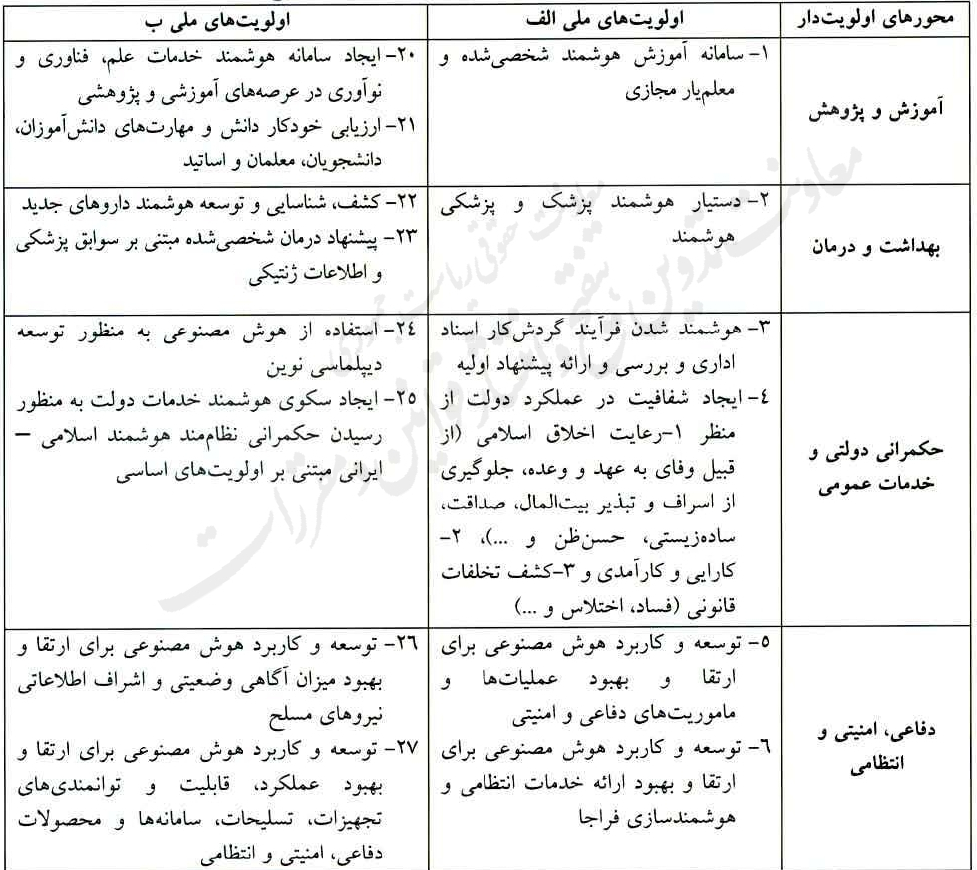 محورهای اولویت‌دار
اولویت‌های ملی الف
اولویت‌های ملی ب
آموزش و پژوهش
۱- سامانه آموزش هوشمند شخصی‌شده و
معلم‌یار مجازی
۲۰- ایجاد سامانه هوشمند خدمات علم، فناوری و
نوآوری در عرصه‌های آموزشی و پژوهشی
۲۱- ارزیابی خودکار دانش و مهارت‌های دانش‌آموزان،
دانشجویان، معلمان و اساتید
بهداشت و درمان
۲- دستیار هوشمند پزشک و پزشکی
هوشمند
۲۲- کشف، شناسایی و توسعه هوشمند داروهای جدید
۲۳- پیشنهاد درمان شخصی‌شده مبتنی بر سوابق پزشکی
و اطلاعات ژنتیکی
حکمرانی دولتی و
خدمات عمومی
۳- هوشمند شدن فرآیند گردش‌کار اسناد
اداری و بررسی و ارائه پیشنهاد اولیه
۴- ایجاد شفافیت در عملکرد دولت از
منظر ۱-رعایت اخلاق اسلامی (از
قبیل وفای به عهد و وعده، جلوگیری
از اسراف و تبذیر بیت‌المال، صداقت،
ساده‌زیستی، حسن‌ظن و ...)، ۲-
کارایی و کارآمدی و ۳-کشف تخلفات
قانونی (فساد، اختلاس و ...)
۲۴- استفاده از هوش مصنوعی به منظور توسعه
دیپلماسی نوین
۲۵- ایجاد سکوی هوشمند خدمات دولت به منظور
رسیدن حکمرانی نظام‌مند هوشمند اسلامی –
ایرانی مبتنی بر اولویت‌های اساسی
دفاعی، امنیتی و
انتظامی
۵- توسعه و کاربرد هوش مصنوعی برای
ارتقا و بهبود عملیات‌ها و
ماموریت‌های دفاعی و امنیتی
۶- توسعه و کاربرد هوش مصنوعی برای
ارتقا و بهبود ارائه خدمات انتظامی و
هوشمندسازی فراجا
۲۶- توسعه و کاربرد هوش مصنوعی برای ارتقا و
بهبود میزان آگاهی وضعیتی و اشراف اطلاعاتی
نیروهای مسلح
۲۷- توسعه و کاربرد هوش مصنوعی برای ارتقا و
بهبود عملکرد، قابلیت و توانمندی‌های
تجهیزات، تسلیحات، سامانه‌ها و محصولات
دفاعی، امنیتی و انتظامی
معاونت تدوین، تنقیح و انتشار قوانین و مقررات
معاونت حقوقی ریاست جمهوری